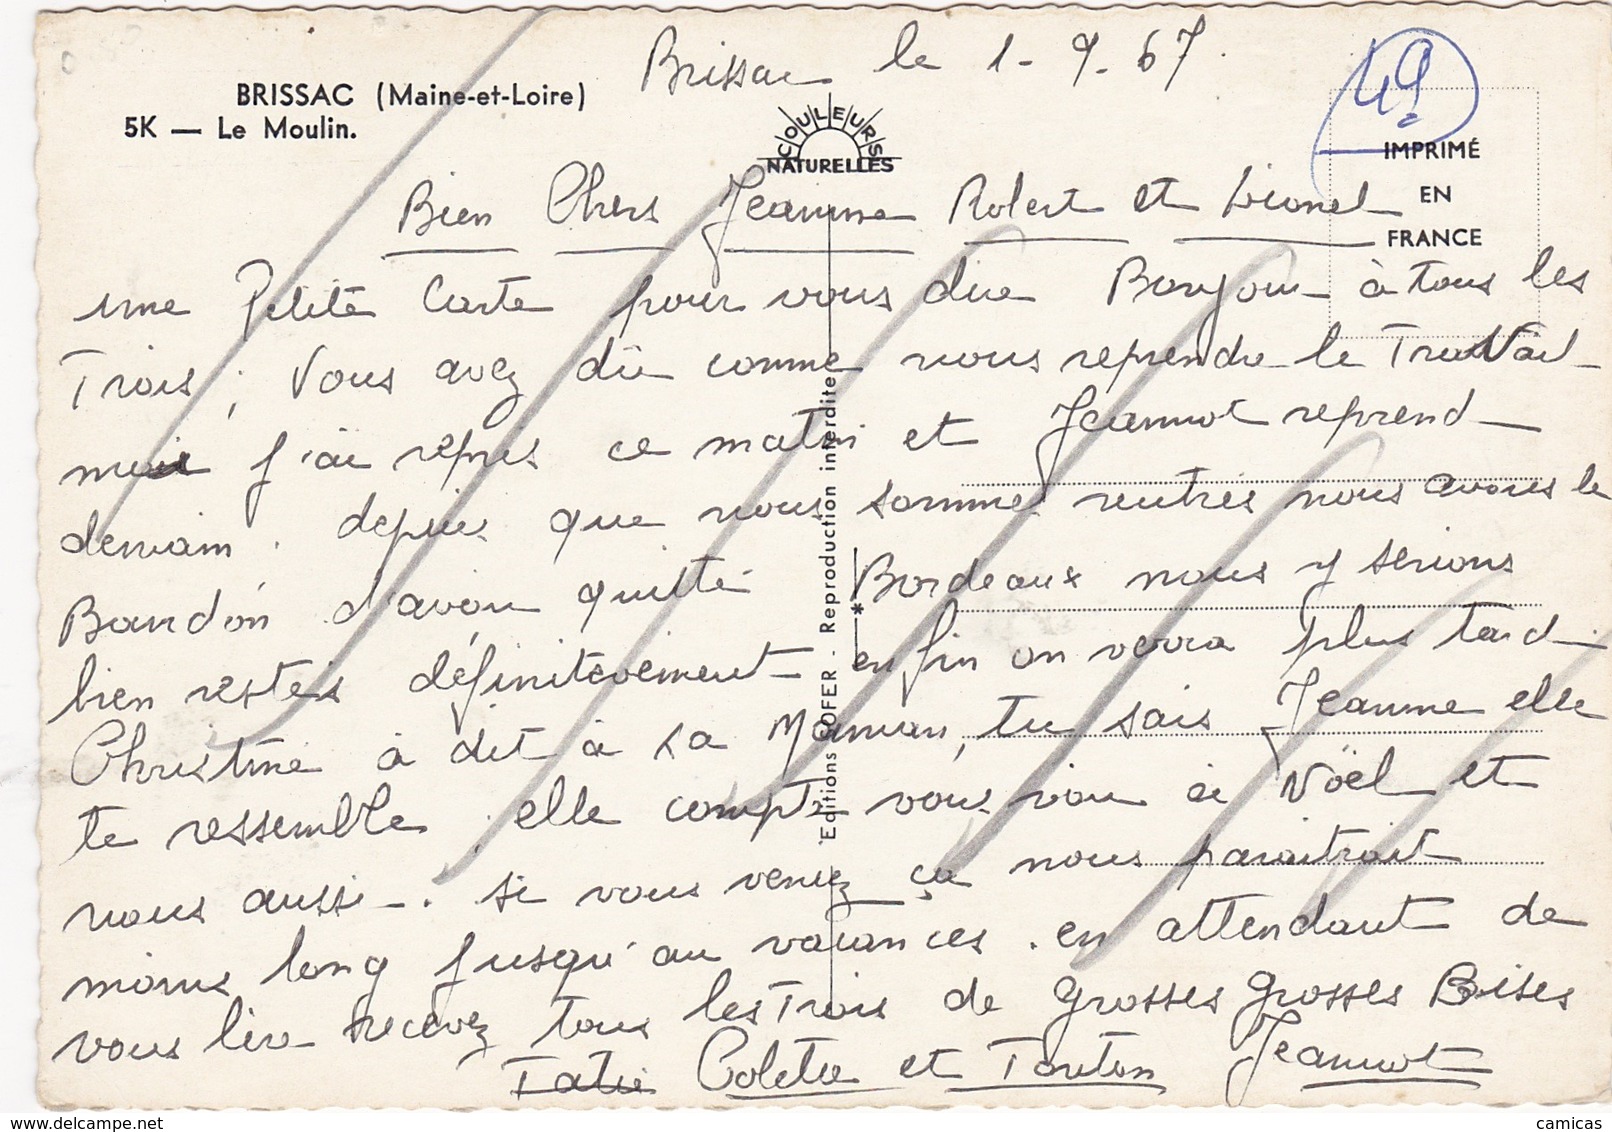 Brissac le 1-9-67.
49
BRISSAC (Maine-et-Loire)
5K — Le Moulin.
COULEURS
NATURELLES
IMPRIMÉ
EN
FRANCE
Bien Chers Jeanne Robert et Lionel
une Petite Carte pour vous dire Bonjour à tous les
Trois, Vous avez dû comme nous reprendre le Travail
moi j'ai repris ce matin et Jeannot reprend
demain. depuis que nous sommes rentrés nous avons le
Bourdon d'avoir quitté Bordeaux nous y serions
bien restés définitevement enfin on verra plus tard.
Christine à dit à sa Maman, tu sais Jeanne elle
te ressemble. elle compte vous voir à Nöel et
nous aussi. si vous venez ça nous paraitrait
moins long jusqu'au vacances. en attendant de
vous lire recevez tous les Trois de grosses grosses Bises
Tatie Colette et Tonton Jeannot
Editions COFER - Reproduction interdite
*
camicas